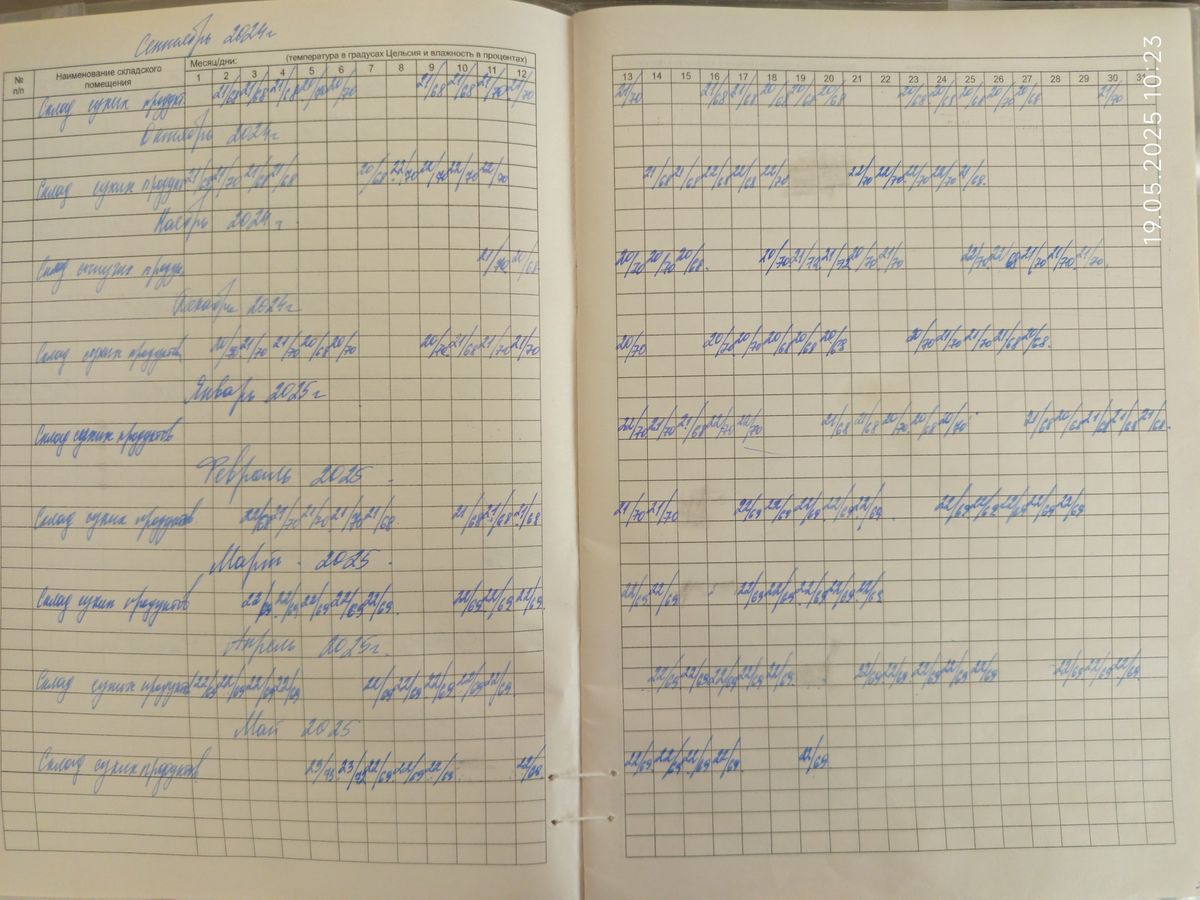 Сентябрь 2024г
№ п/п Наименование складского помещения Месяц/дни: (температура в градусах Цельсия и влажность в процентах)
1 2 3 4 5 6 7 8 9 10 11 12 13 14 15 16 17 18 19 20 21 22 23 24 25 26 27 28 29 30 31
Склад сухих продукт. 21/68 21/68 21/68 20/70 20/70 21/68 21/68 21/70 21/70 21/70 21/68 21/68 20/68 20/68 20/68 20/68 20/68 20/68 20/70 20/68 21/70
Октябрь 2024г
Склад сухих продукт 21/70 21/68 21/68 20/68 22/70 22/70 22/70 22/70 21/68 21/68 22/68 22/68 22/70 22/70 22/70 22/70 22/70 21/68.
Ноябрь 2024г.
Склад сыпучих продук. 21/70 20/68 20/70 20/70 20/68. 20/70 21/72 21/72 20/70 21/70 22/70 21/68 21/70 21/70 21/70.
Декабрь 2024г
Склад сухих продуктов 20/70 21/70 21/70 20/68 20/70 20/70 21/68 21/70 21/70 20/70 20/70 20/70 20/68 20/68 20/68 20/70 21/70 21/70 21/68 20/68.
Январь 2025г
Склад сухих продуктов 22/70 21/70 21/68 22/70 22/70 21/68 21/68 20/70 20/68 20/70 21/68 20/68 21/68 21/68 21/68.
Февраль 2025.
Склад сухих продуктов 22/68 21/70 21/70 21/70 21/68. 21/68 21/68 21/68 21/70 21/70 22/69 22/69 22/69 22/69 22/69. 22/69 22/69 22/69 22/69 22/69
Март. 2025.
Склад сухих продуктов 22/69 22/69 22/69 22/69. 22/69 22/69 22/69. 22/69 22/69 22/69 22/69 22/69 22/69 22/69
Апрель 2025г.
Склад сухих продукт 22/69 22/69 22/69 22/69 22/69 22/69 22/69 22/69 22/69 22/69 22/69 22/69 22/69 22/69. 22/69 22/69 22/69 22/69 22/69 22/69 22/69 22/69
Май 2025
Склад сухих продуктов 23/73 23/72 22/69 22/69 22/69. 22/69. 22/69 22/69 22/69 22/69. 22/69
19.05.2025 10:23